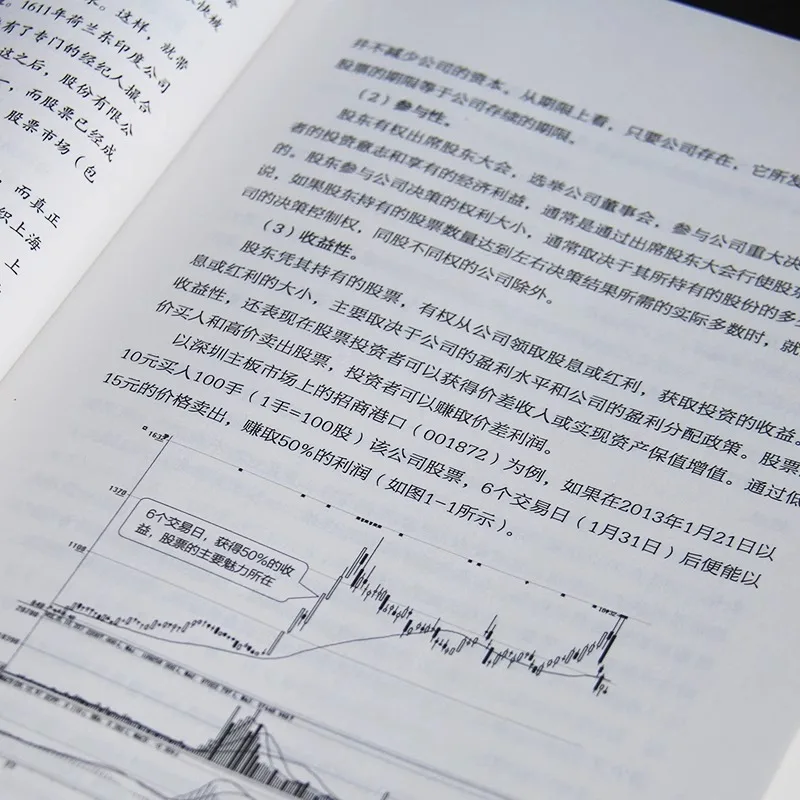 快梭
。这样，就带
。1611年荷兰东印度公司
有了专门的经纪人撮合
这之后，股份有限公
，而股票已经成
股票市场（包
，而真正
织上海
上
并不减少公司的资本。从期限上看，只要公司存在，它所发
股票的期限等于公司存续的期限。
（2）参与性。
股东有权出席股东大会，选举公司董事会，参与公司重大决
者的投资意志和享有的经济利益，通常是通过出席股东大会行使股东
的。股东参与公司决策的权利大小，通常取决于其所持有的股份的多
说，如果股东持有的股票数量达到左右决策结果所需的实际多数时，就
司的决策控制权，同股不同权的公司除外。
（3）收益性。
股东凭其持有的股票，有权从公司领取股息或红利，获取投资的收益。
息或红利的大小，主要取决于公司的盈利水平和公司的盈利分配政策。股票
收益性，还表现在股票投资者可以获得价差收入或实现资产保值增值。通过低
价买人和高价卖出股票，投资者可以赚取价差利润。
以深圳主板市场上的招商港口（001872）为例，如果在2013年1月21日以
10元买人100手（1手=100股）该公司股票，6个交易日（1月31日）后便能以
15元的价格卖出，赚取50%的利润（如图1-1所示）。
6个交易日，获得50%的收
益，股票的主要魅力所在